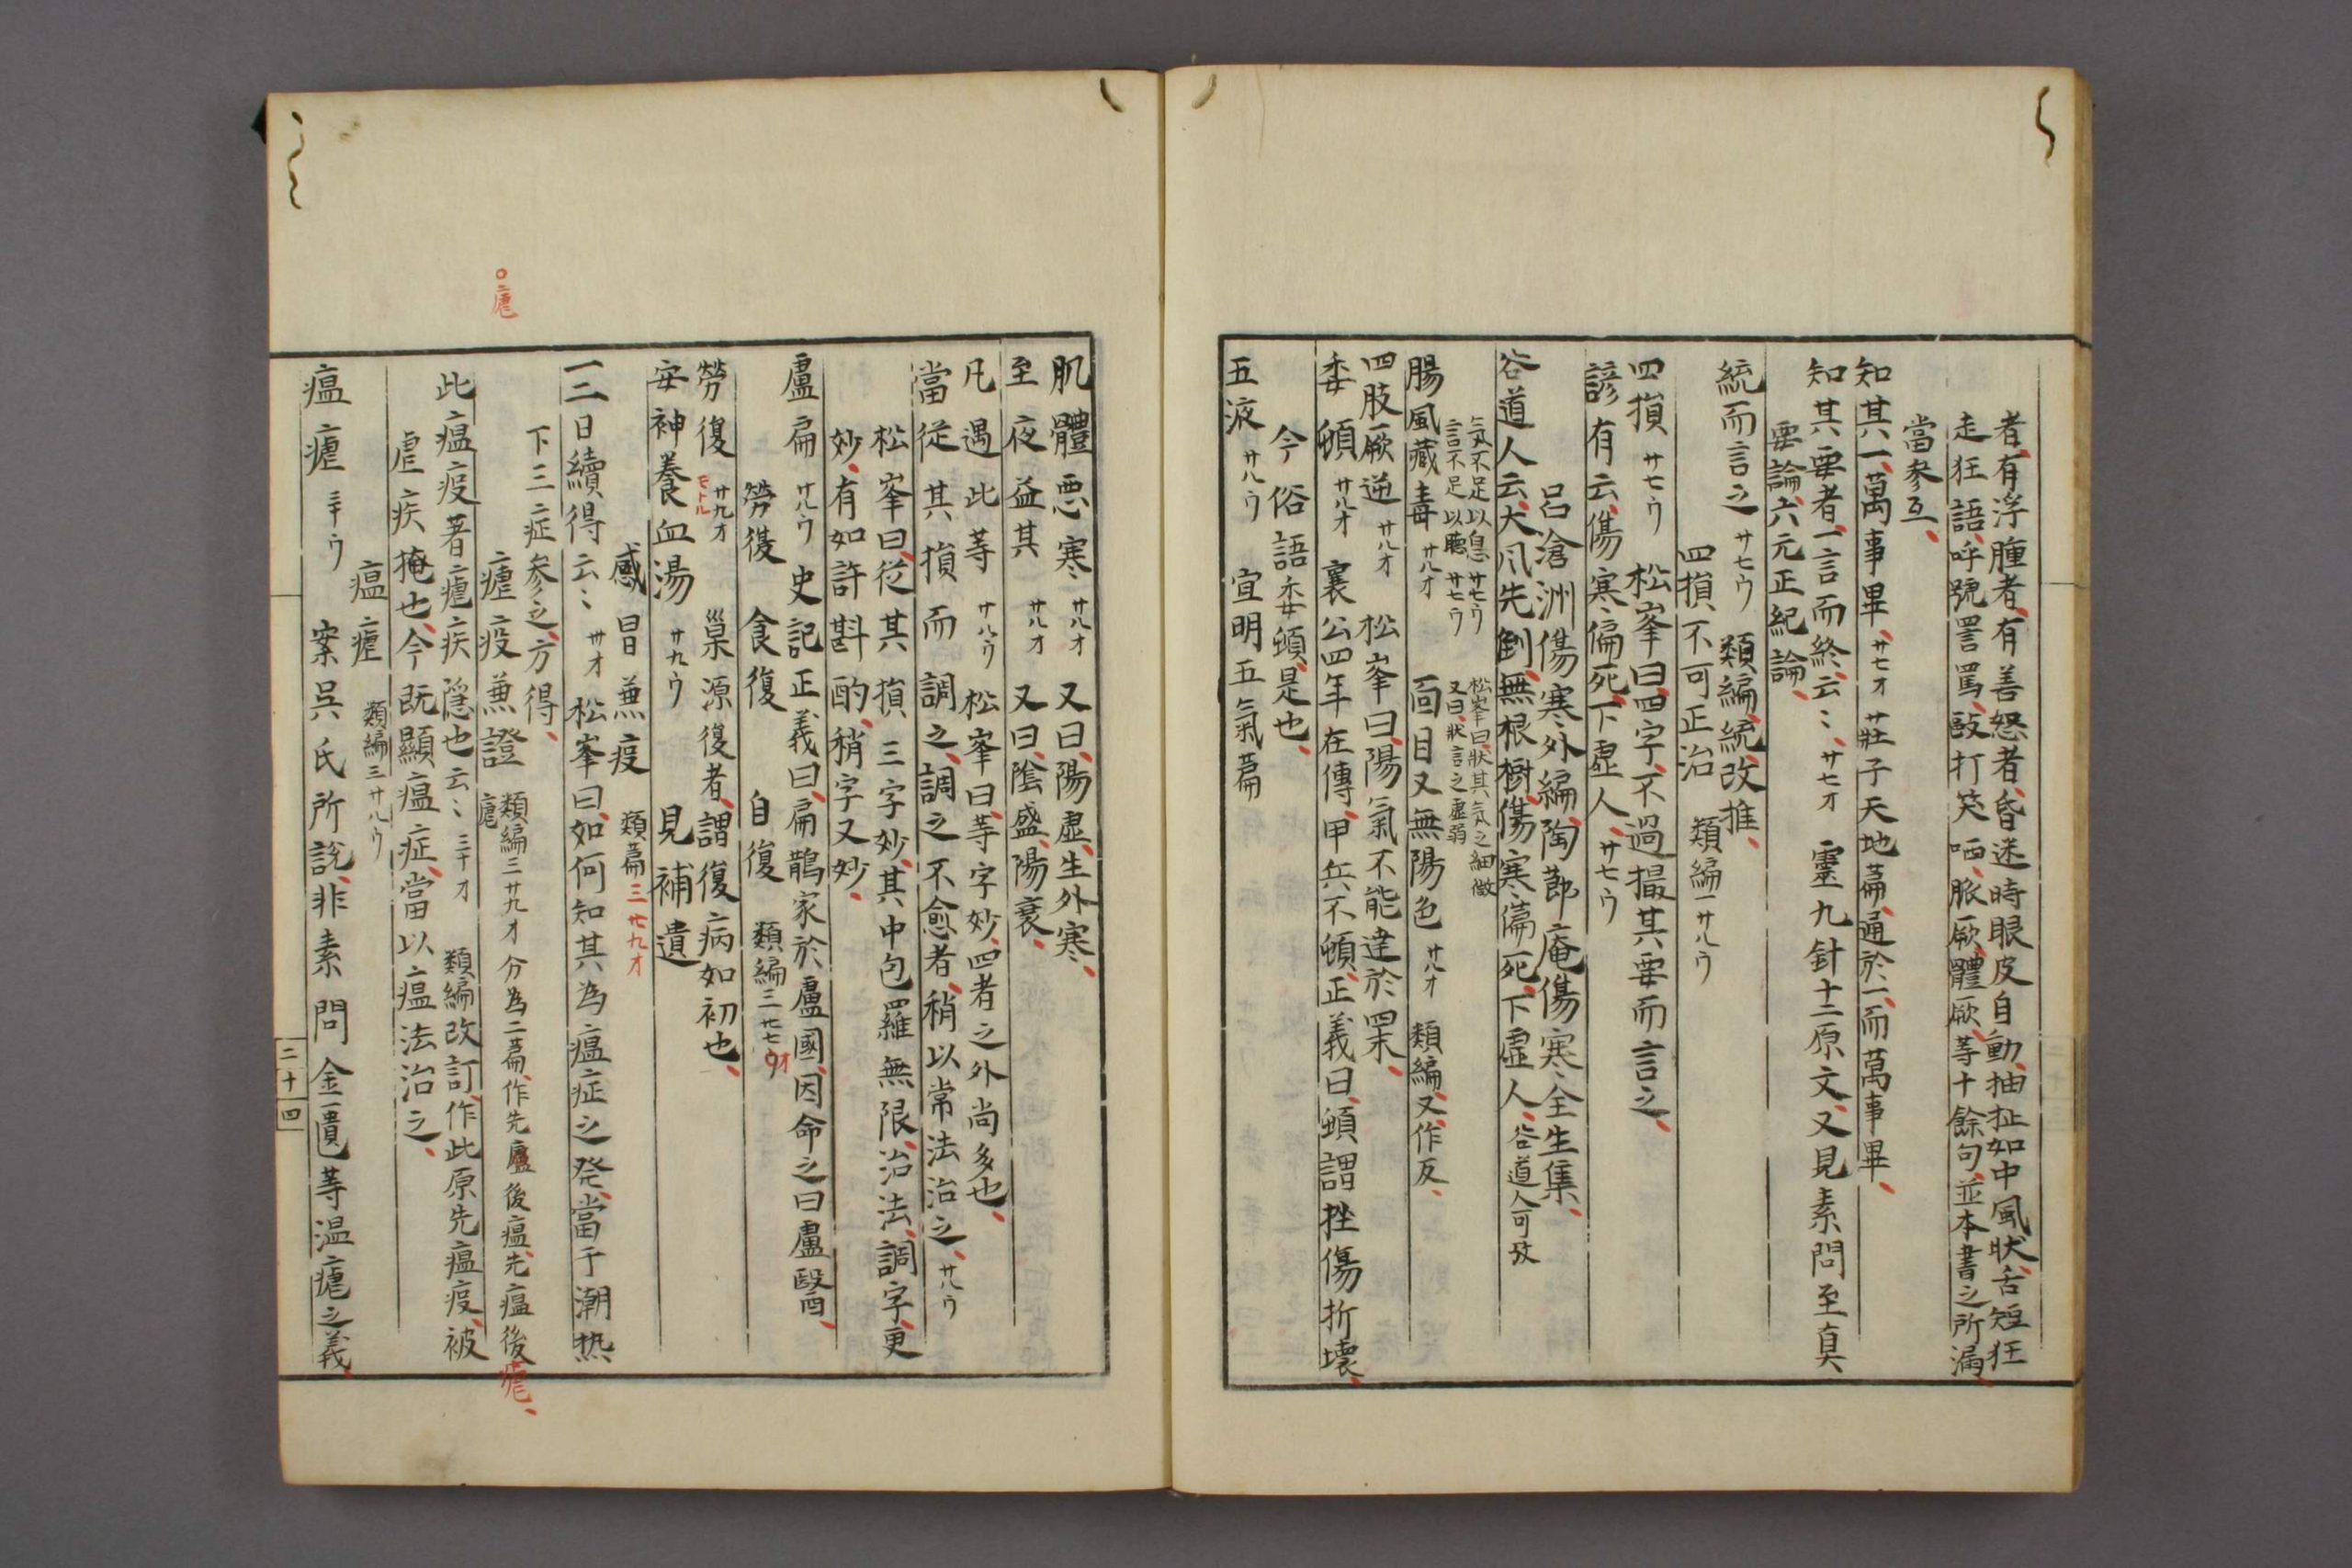 者、有浮腫者、有善怒者、昏迷時眼皮自動、抽扯如中風狀、舌短狂
走狂語、呼號詈罵、毆打笑哂、脈厥、體厥、等十餘句、並本書之所漏、
當參互、
知其一、萬事畢、廿七オ 莊子天地篇、通於一、而萬事畢、
知其要者、一言而終、云〻、廿七オ 靈九針十二原文、又見素問至真
要論、六元正紀論、
統而言之 廿七ウ 類編、統、改推、
四損不可正治 類編一廿八ウ
四損 廿七ウ 松峯曰、四字、不過撮其要而言之、
諺有云、傷寒偏死、下虛人、廿七ウ
呂滄洲傷寒外編、陶節庵傷寒全生集、
谷道人云、大凡先倒、無根樹、傷寒偏死、下虛人、谷道人可攷
氣不足以息 廿七ウ 松峯曰、狀其氣之細微
言不足以聽 廿七ウ 又曰、狀言之虛弱
腸風藏毒 廿八オ 面目又無陽色 廿八オ 類編、又、作反、
四肢厥逆 廿八オ 松峯曰、陽氣不能達於四末、
委頓 廿八オ 襄公四年在傳、甲兵不頓、正義曰、頓謂挫傷折壞、
今俗語委頓、是也、
五液 廿八ウ 宣明五氣篇
肌體惡寒 廿八オ 又曰、陽虛、生外寒、
至夜益其 廿八オ 又曰、陰盛、陽衰、
凡遇此等 廿八ウ 松峯曰、等字妙、四者之外尚多也、
當從其損而調之、調之不愈者、稍以常法治之、廿八ウ
松峯曰、從其損三字妙、其中包羅無限、治法、調字、更
妙、有如許斟酌、稍字又妙、
盧扁 廿八ウ 史記正義曰、扁鵲家於盧國、因命之曰盧醫、
勞復 食復 自復 類編三廿七ウオ
勞復 廿九オ モトル 巢源復者、謂復病如初也、
安神養血湯 廿九ウ 見補遺
感冒兼疫 類篇三廿九オ
一二日續得云〻 卅オ 松峯曰、如何知其為瘟症之発、當于潮热
下三症參之、方得、
瘧疫兼證 類編三廿九オ 分為二篇、作先瘧後瘟、先瘟後瘧、
瘧
○二瘧
此瘟疫著瘧疾隱也云〻 三十オ 類編改訂、作此原先瘟疫、被
虐疾掩也、今既顯瘟症、當以瘟法治之、
瘟瘧 類編三廿八ウ
瘟瘧 三十ウ 案吳氏所說、非素問金匱等温瘧之義、
二十四